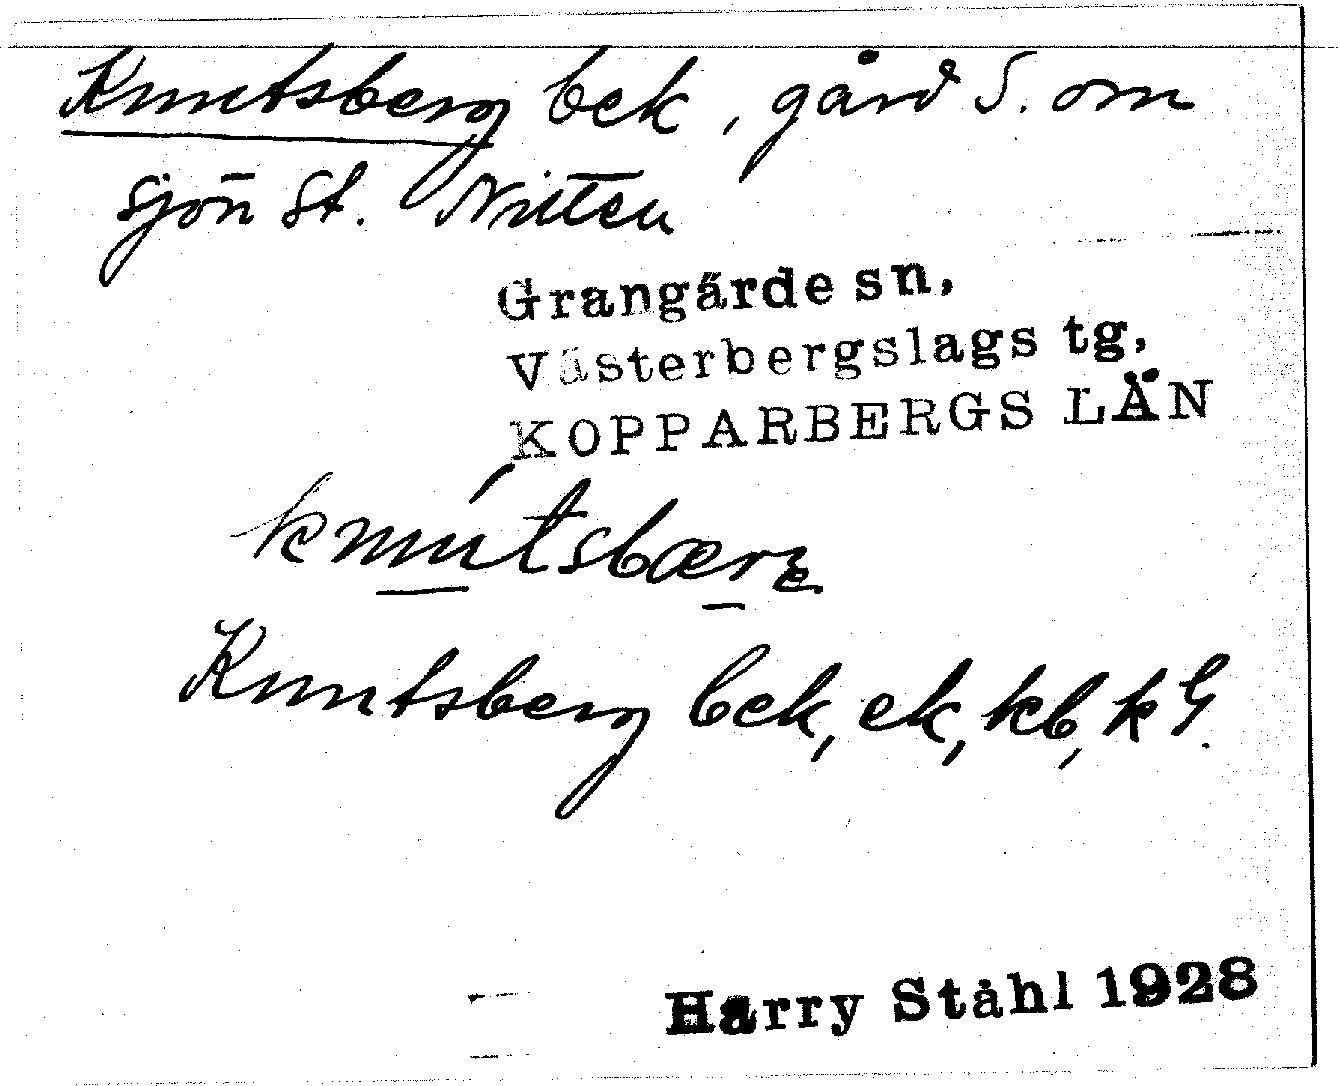 Knutsberg bek, gård S. om
sjön St. Nitten
Grangärde sn,
Västerbergslags tg,
KOPPARBERGS LÄN
knútsbærɛ
Knutsberg bek, ek, kb, kG.
Harry Ståhl 1928